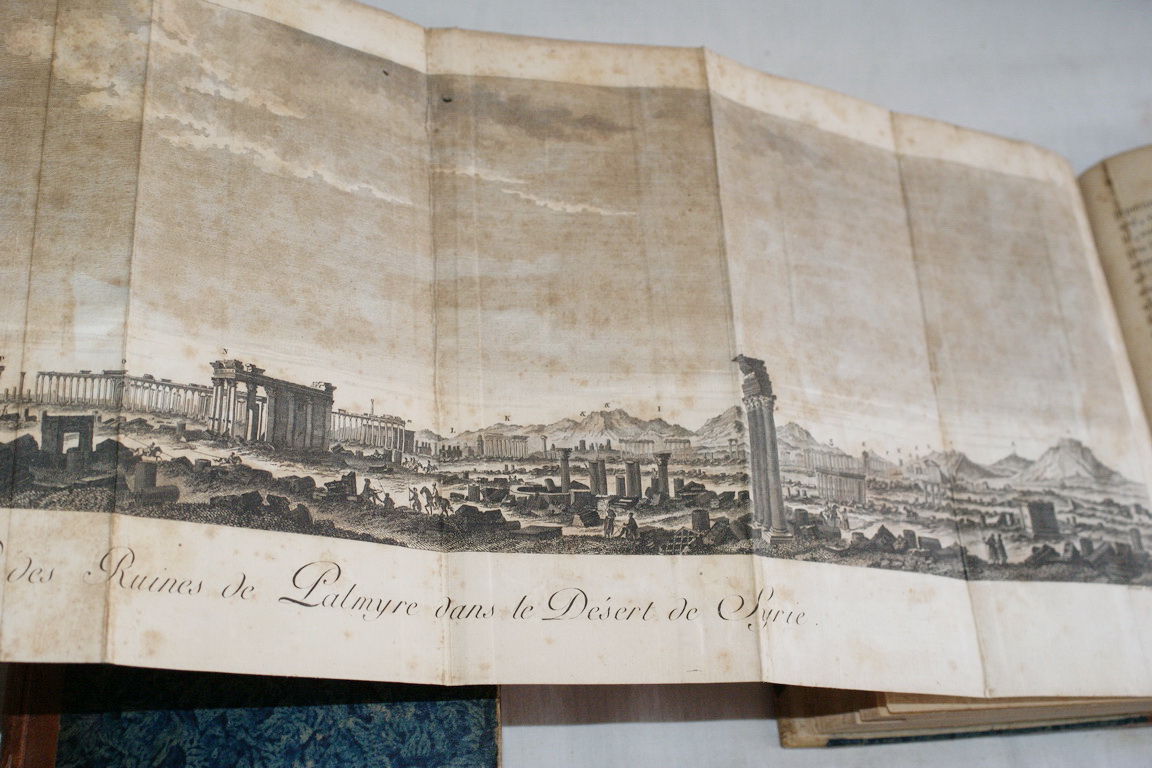 N
O
L
K
K
K
K
I
des Ruines de Palmyre dans le Désert de Syrie.